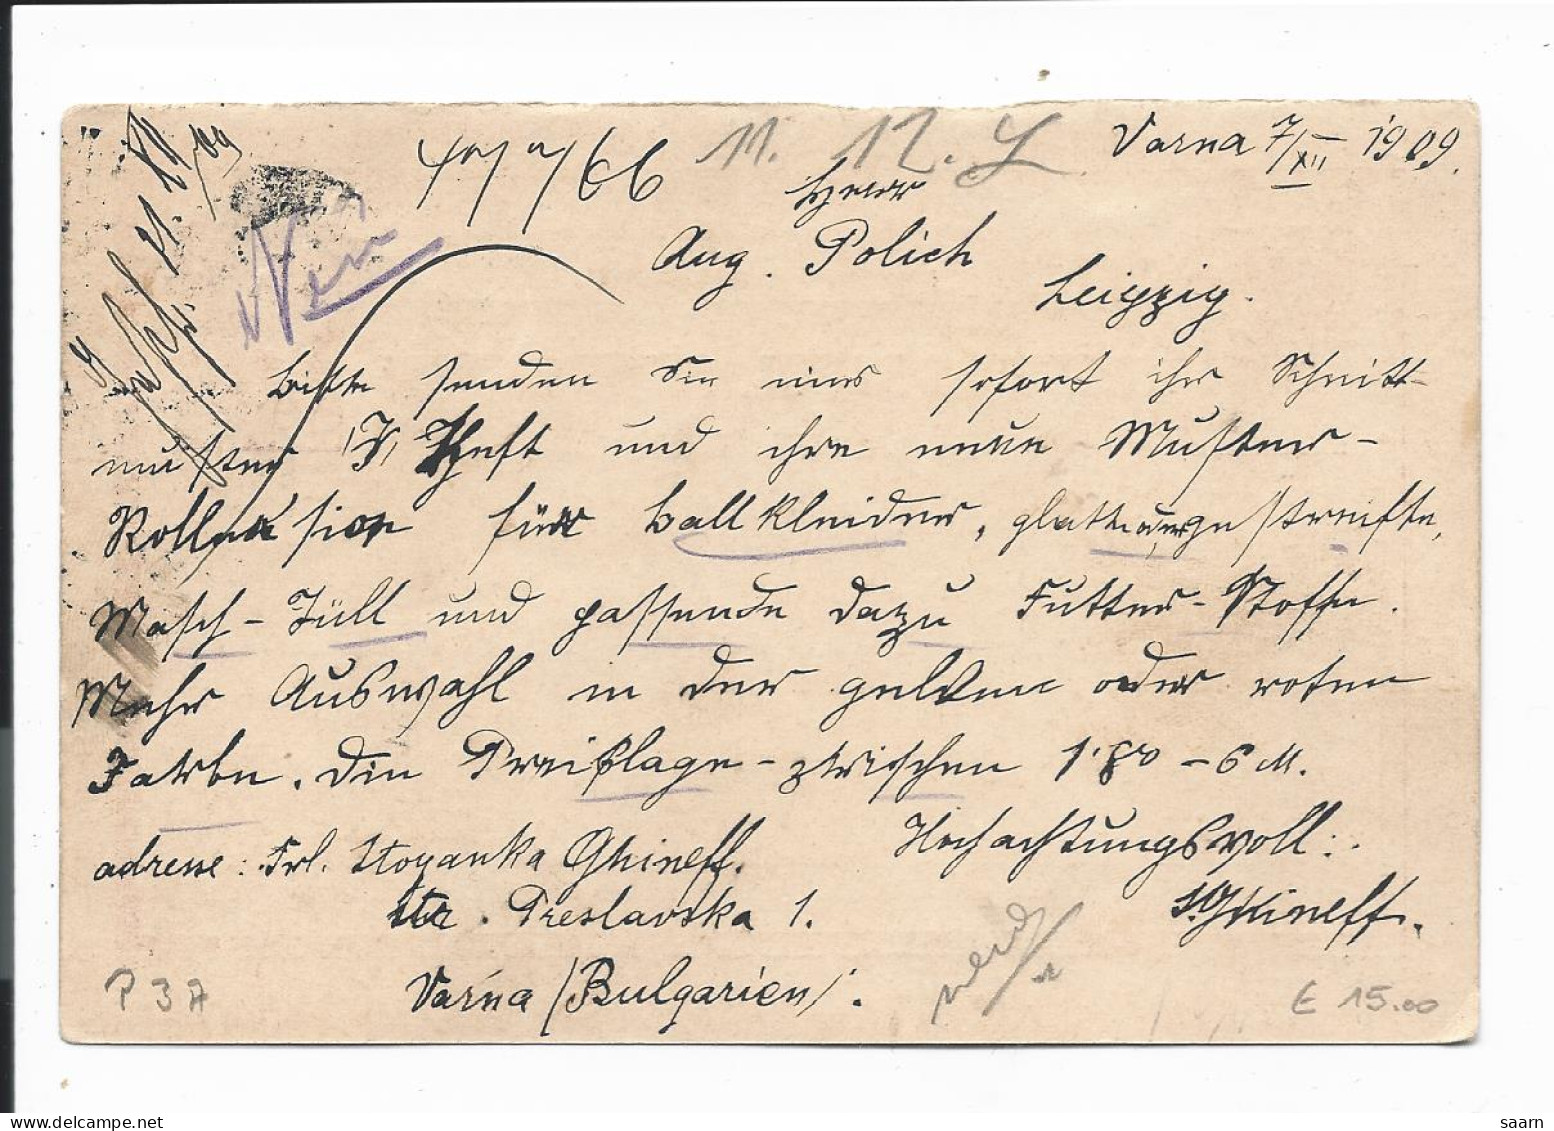 11. 12. 9
Varna 7/XII 1909.
Herr
Aug. Polich
Leipzig.
bitte senden Sie uns sofort ihr Schnitt-
muster Heft und ihre neue Muster-
Kollection für ballkleider, glatte gestreifte,
Masch-Tüll und passende dazu Futter-Stoffe.
Mehr Auswahl in der gelben oder roten
Farbe. die Preislage - zwischen 1.80 - 6 M.
Hochachtungsvoll:
adresse: Frl. Stoyanka Ghineff.
str. Preslavska 1.
S. Ghineff.
Varna / Bulgarien /.
P 37A
€ 15.00
saarn